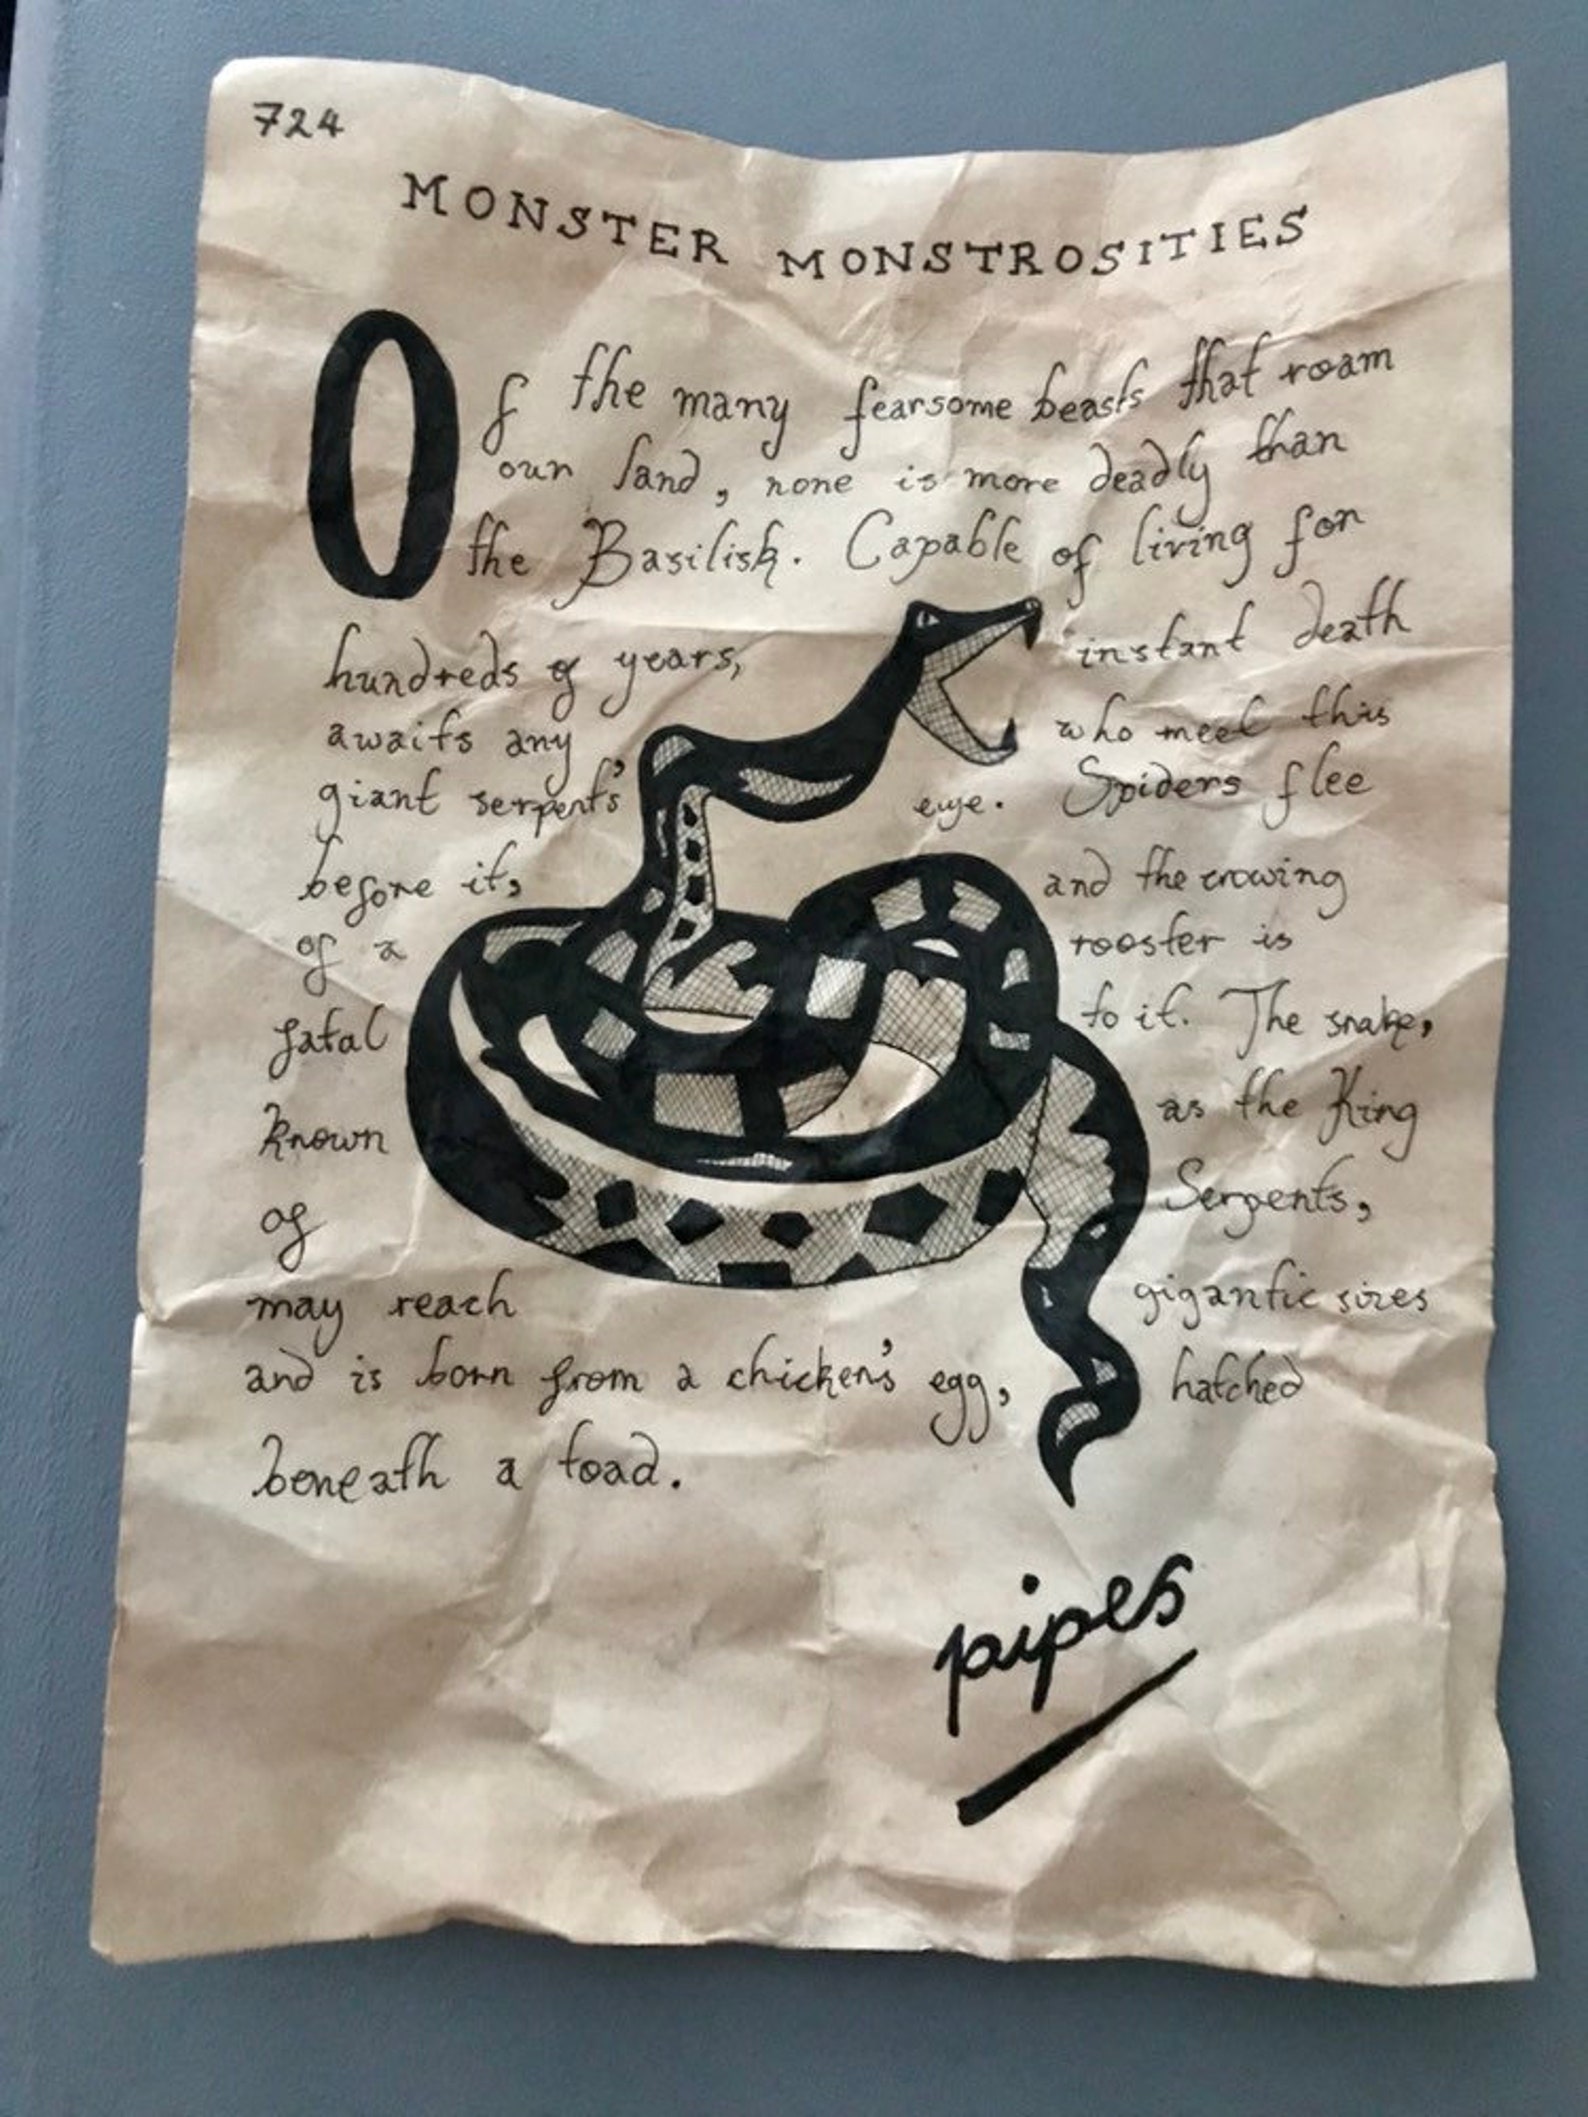 724
MONSTER MONSTROSITIES
Of the many fearsome beasts that roam
our land, none is more deadly than
the Basilisk. Capable of living for
hundreds of years, instant death
awaits any who meet this
giant serpent's eye. Spiders flee
before it, and the crowing
of a rooster is
fatal to it. The snake,
known as the King
of Serpents,
may reach gigantic sizes
and is born from a chicken's egg, hatched
beneath a toad.
pipes